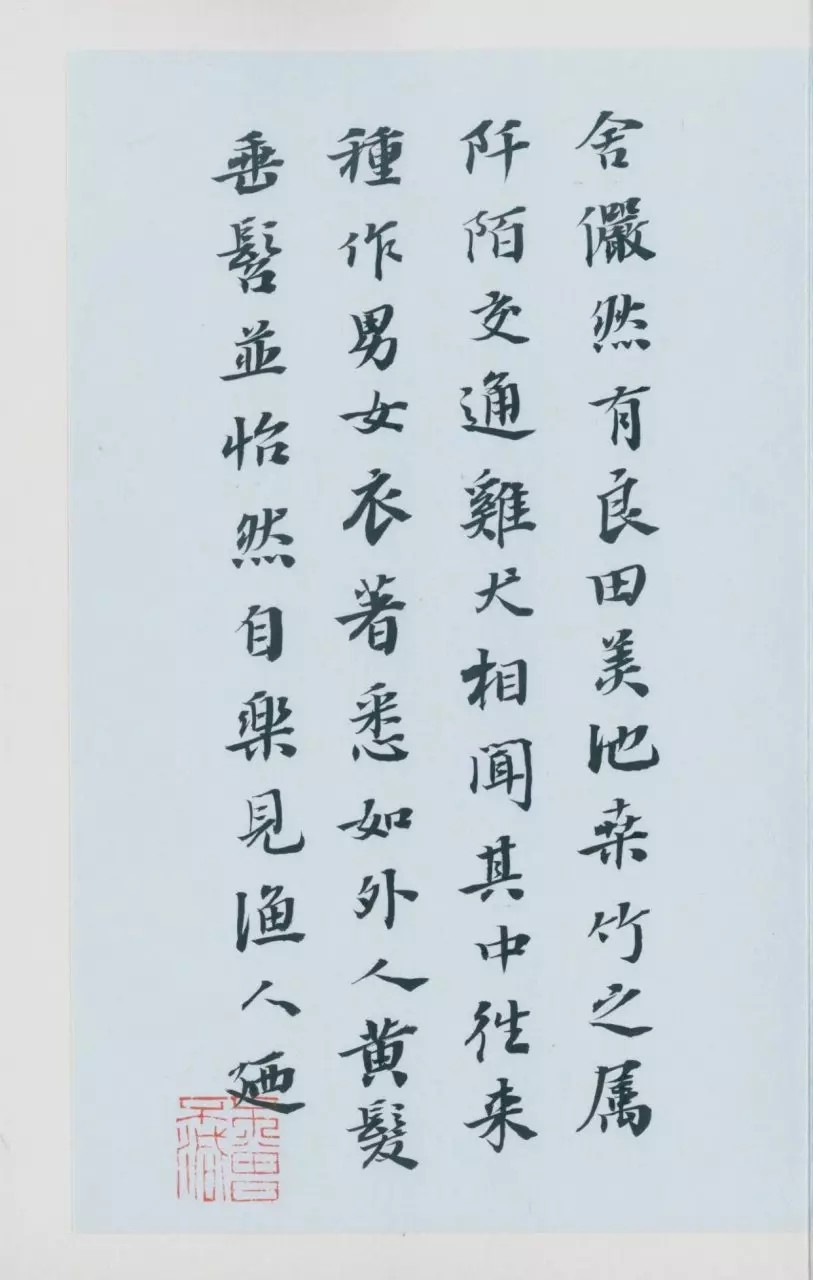 舍儼然有良田美池桑竹之属
阡陌交通雞犬相聞其中徃来
種作男女衣著悉如外人黄髮
垂髫並怡然自樂見漁人廼